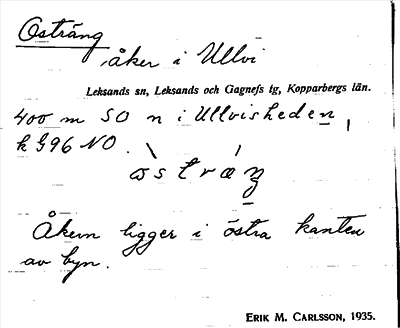 Osträng
åker i Ullvi
Leksands sn, Leksands och Gagnefs tg, Kopparbergs län.
400 m SO n i Ullvisheden,
k 396 NO.
ɷstræŋ
Åkern ligger i östra kanten
av byn.
ERIK M. CARLSSON, 1935.